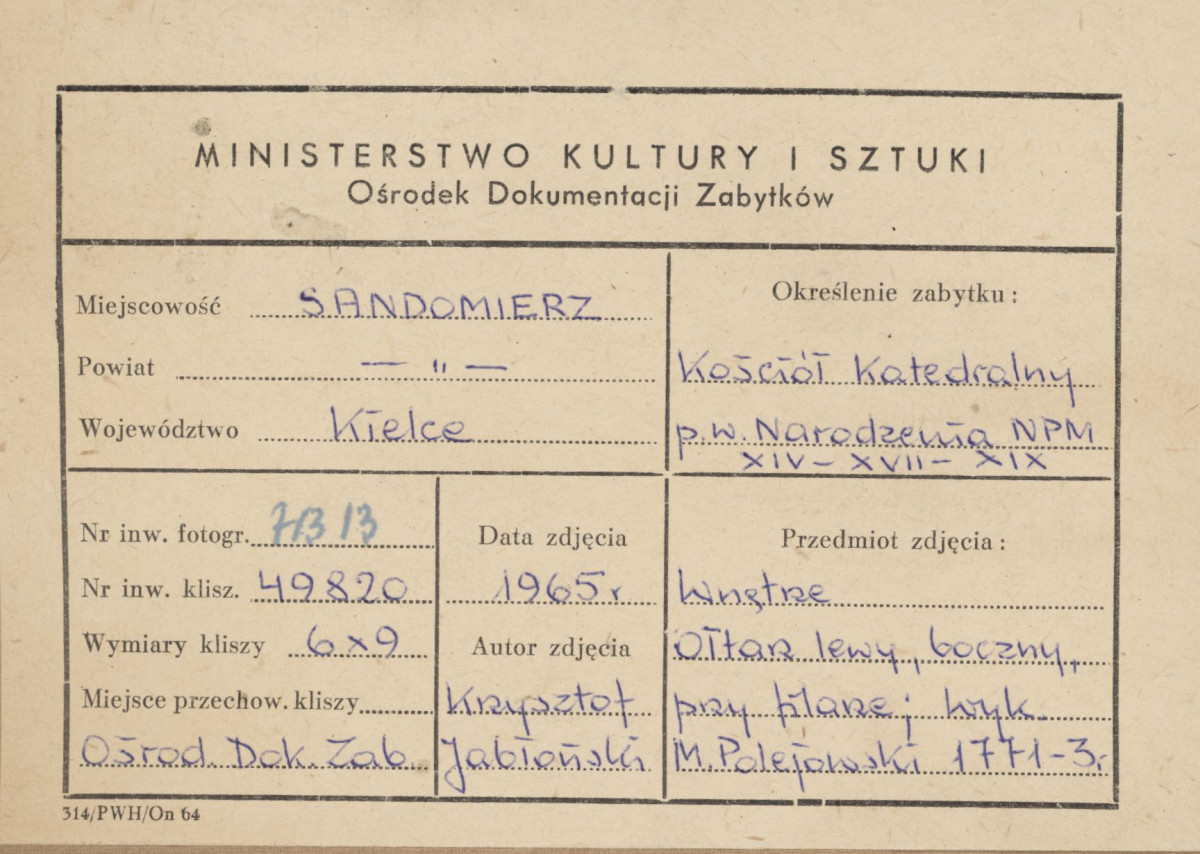 MINISTERSTWO KULTURY I SZTUKI
Ośrodek Dokumentacji Zabytków
Miejscowość SANDOMIERZ
Powiat — " —
Województwo Kielce
Określenie zabytku:
Kościół Katedralny
p.w. Narodzenia NPM
XIV – XVII – XIX
Nr inw. fotogr.
Nr inw. klisz. 49820
Wymiary kliszy 6x9
Miejsce przechow. kliszy
Ośrod. Dok. Zab.
Data zdjęcia
1965 r
Autor zdjęcia
Krzysztof
Jabłoński
Przedmiot zdjęcia:
Wnętrze
Ołtarz lewy, boczny,
przy filarze; wyk.
M. Polejowski 1771-3r.
314/PWH/On 64